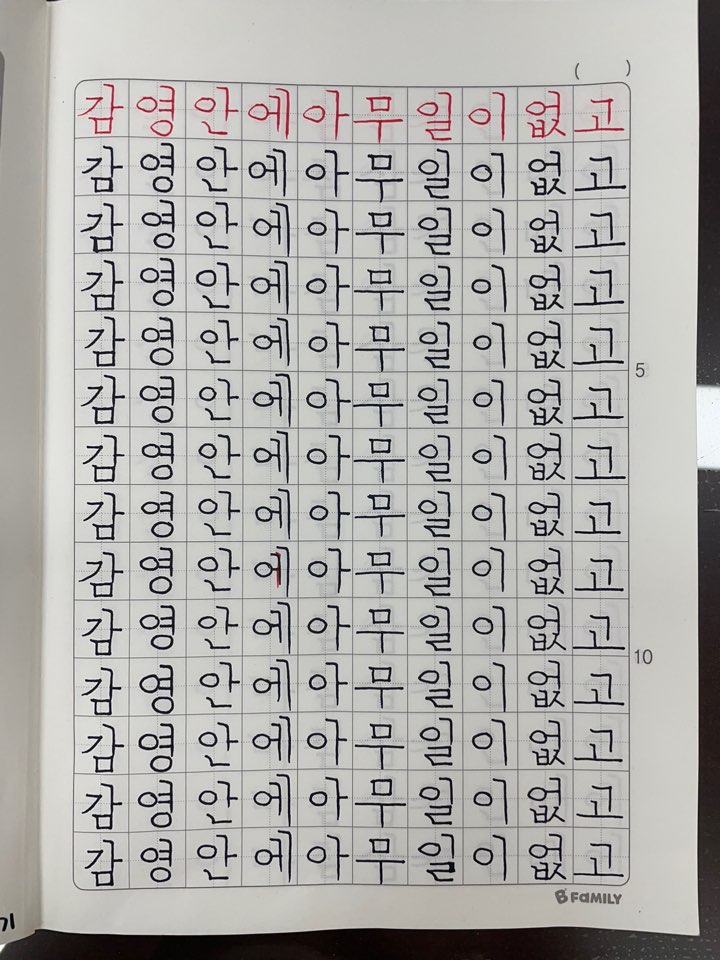 ( )
감영안에아무일이없고
감영안에아무일이없고
감영안에아무일이없고
감영안에아무일이없고
감영안에아무일이없고
5
감영안에아무일이없고
감영안에아무일이없고
감영안에아무일이없고
감영안에아무일이없고
감영안에아무일이없고
10
감영안에아무일이없고
감영안에아무일이없고
감영안에아무일이없고
감영안에아무일이없고
B FAMILY
기